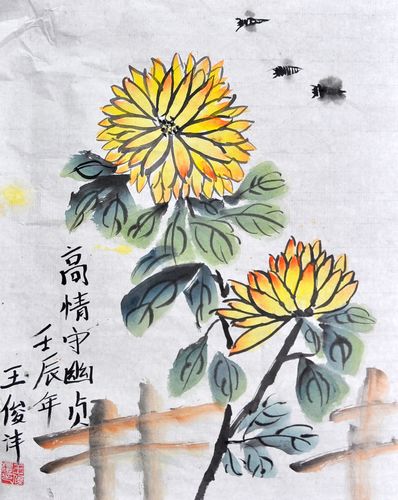 高情守幽贞
壬辰年
王俊沣